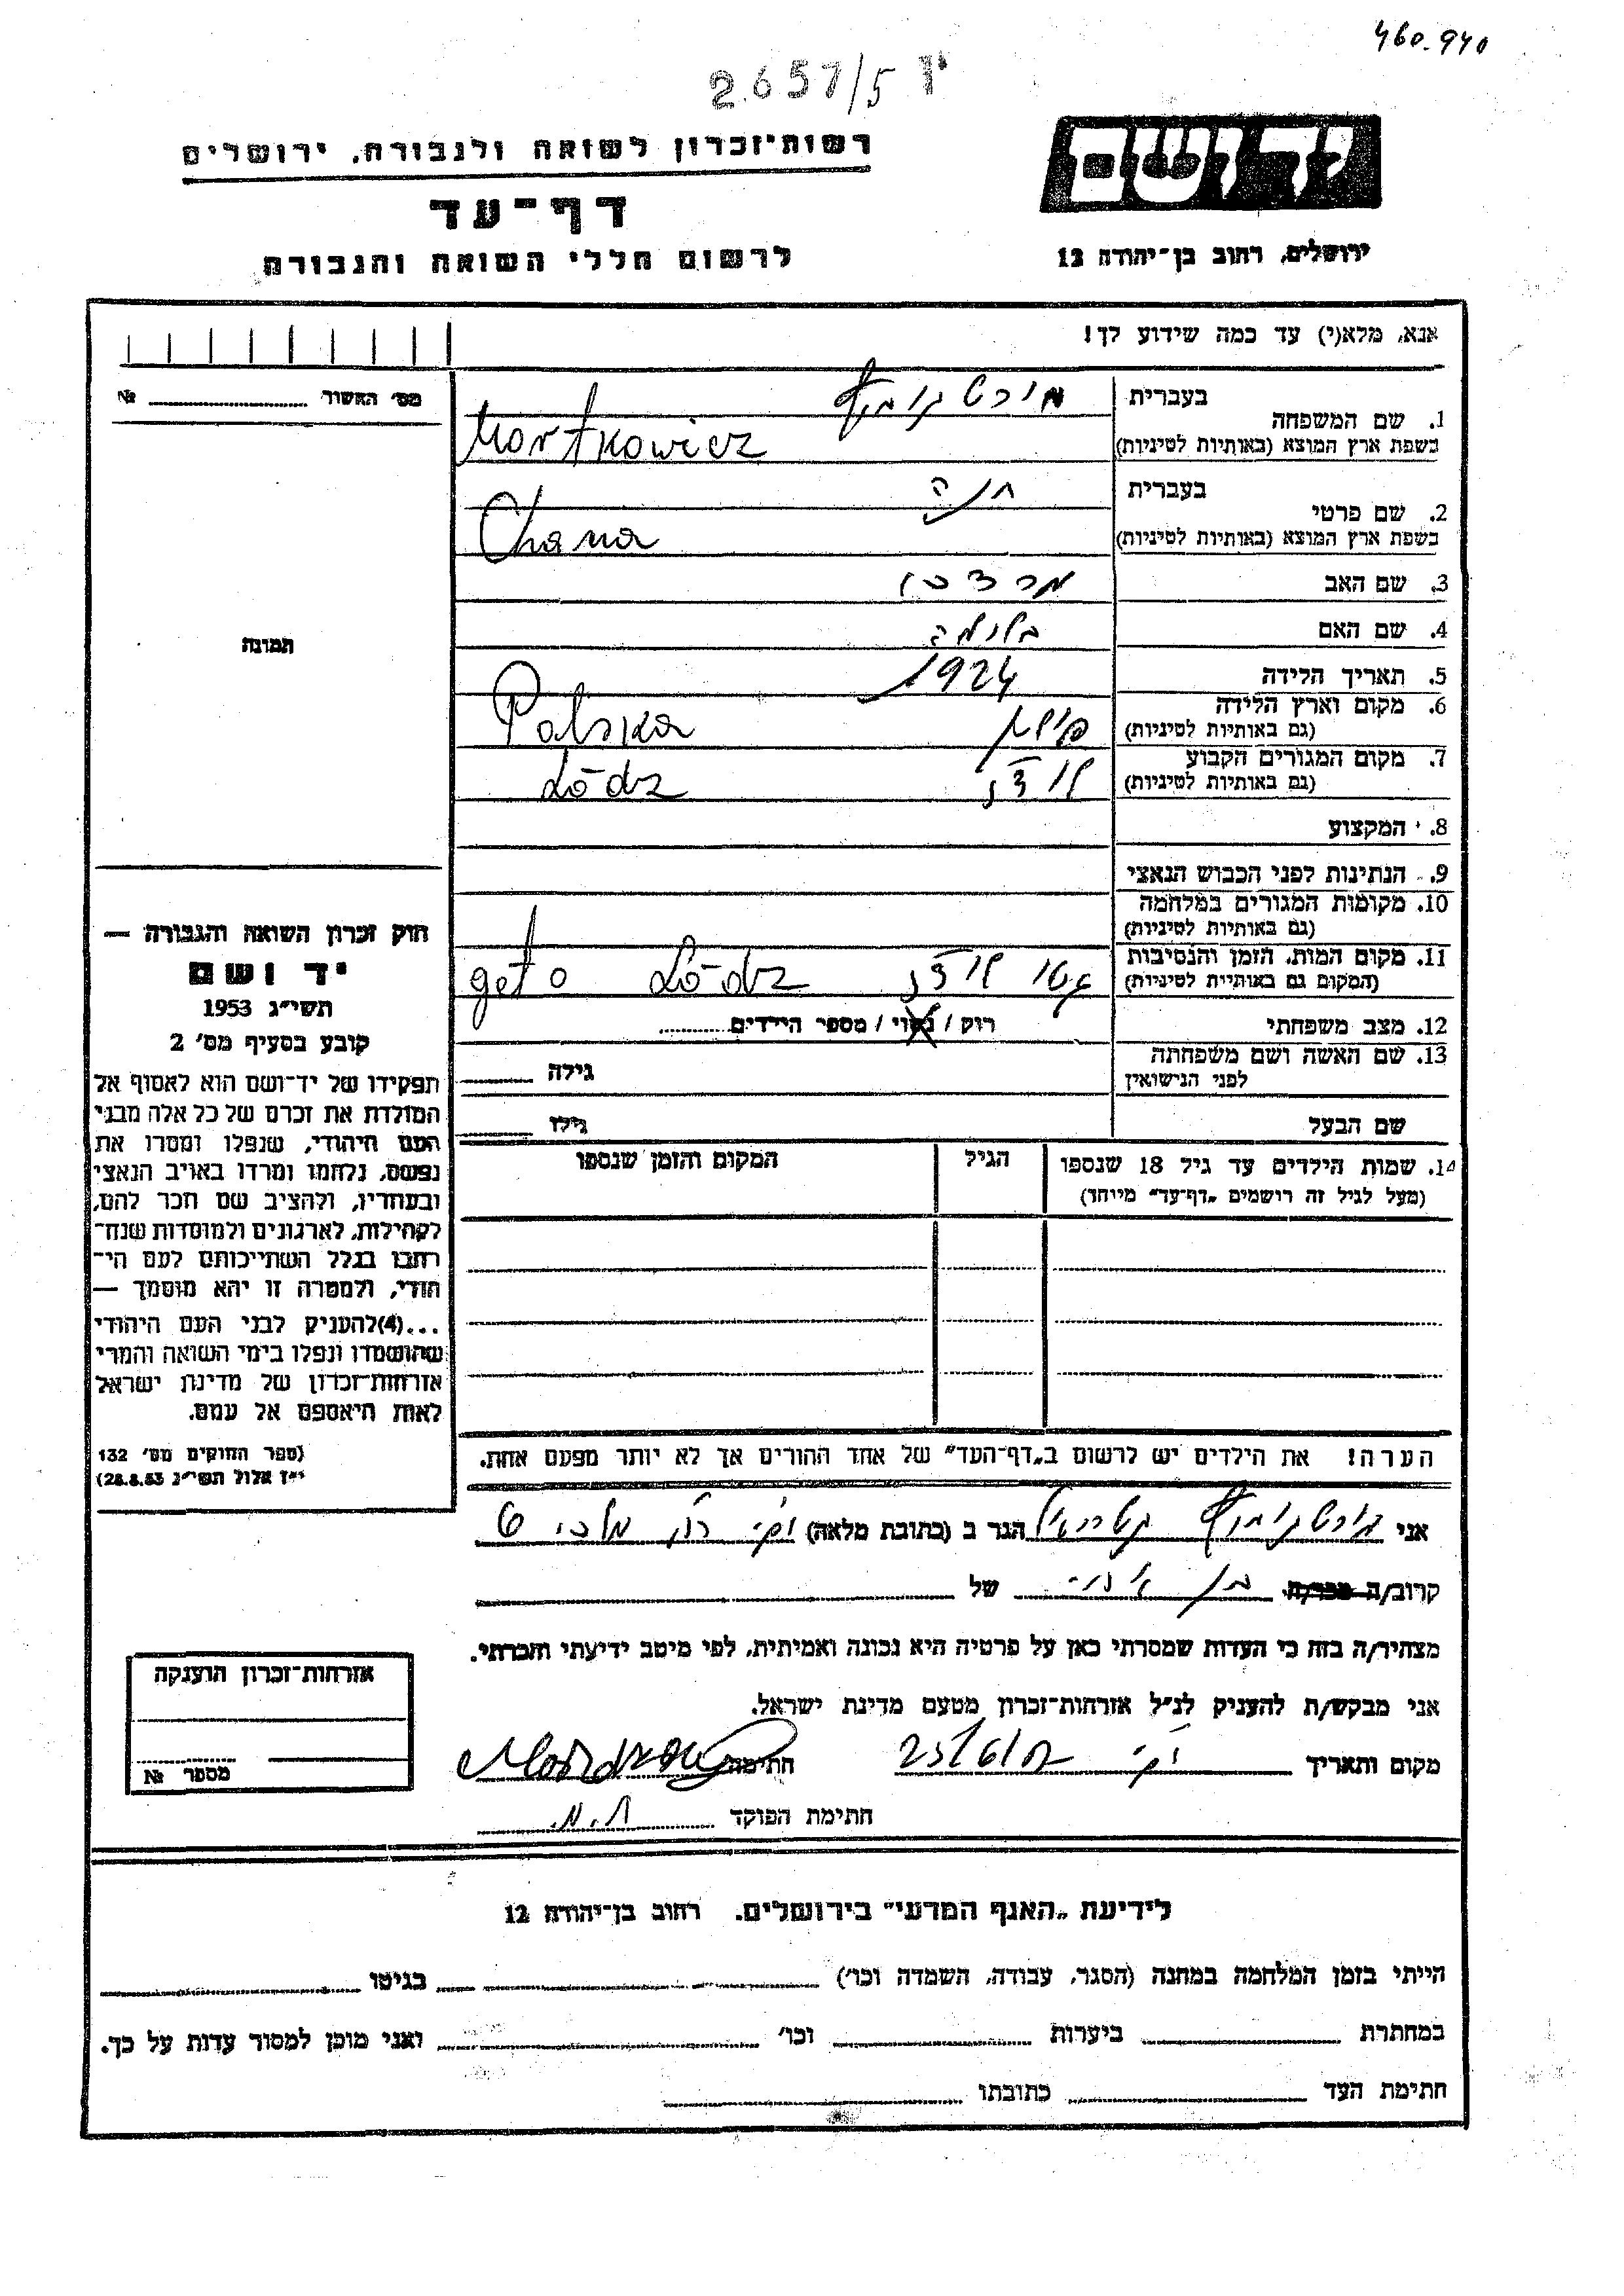 460.940
2657/5 י'
רשות־זכרון לשואה ולגבורה, ירושלים
דף־עד
לרשום חללי השואה והגבורה
יד ושם
ירושלים, רחוב בן־יהודה 12
אנא, מלא(י) עד כמה שידוע לך!
מס' האשור № 
1. שם המשפחה
בעברית
Mortkowicz
בשפת ארץ המוצא (באותיות לטיניות)
2. שם פרטי
בעברית חנה
בשפת ארץ המוצא (באותיות לטיניות)
Chana
3. שם האב מרדכי
4. שם האם בלומה
תמונה
5. תאריך הלידה 1924
6. מקום וארץ הלידה
(גם באותיות לטיניות)
פולין Polska
7. מקום המגורים הקבוע
(גם באותיות לטיניות)
לודז Lódz
8. המקצוע
9. הנתינות לפני הכבוש הנאצי
10. מקומות המגורים במלחמה
(גם באותיות לטיניות)
11. מקום המות, הזמן והנסיבות
(המקום גם באותיות לטיניות)
גטו לודז geto Lódz
12. מצב משפחתי
רוק / נשוי / מספר הילדים
13. שם האשה ושם משפחתה
לפני הנישואין
גילה
שם הבעל
גילו
14. שמות הילדים עד גיל 18 שנספו
(מעל לגיל זה רושמים „דף־עד" מיוחד)
הגיל
המקום והזמן שנספו
הערה! את הילדים יש לרשום ב„דף־העד" של אחד ההורים אך לא יותר מפעם אחת.
חוק זכרון השואה והגבורה —
יד ושם
תשי"ג 1953
קובע בסעיף מס' 2
תפקידו של יד־ושם הוא לאסוף אל
המולדת את זכרם של כל אלה מבני
העם היהודי, שנפלו ומסרו את
נפשם, נלחמו ומרדו באויב הנאצי
ובעוזריו, ולהציב שם וזכר להם,
לקהילות, לארגונים ולמוסדות שנח־
רבו בגלל השתייכותם לעם הי־
הודי, ולמטרה זו יהא מוסמך —
...(4) להעניק לבני העם היהודי
שהושמדו ונפלו בימי השואה והמרי
אזרחות־זכרון של מדינת ישראל
לאות היאספם אל עמם.
(ספר החוקים מס' 132
י"ז אלול תשי"ג 28.8.53)
אני הגר ב (כתובת מלאה)
קרוב/ה מכר/ה בן של
מצהיר/ה בזה כי העדות שמסרתי כאן על פרטיה היא נכונה ואמיתית, לפי מיטב ידיעתי והכרתי.
אני מבקש/ת להעניק לנ"ל אזרחות־זכרון מטעם מדינת ישראל.
מקום ותאריך חתימה
חתימת הפוקד
אזרחות־זכרון הוענקה
מספר №
לידיעת „האגף המדעי" בירושלים, רחוב בן־יהודה 12
הייתי בזמן המלחמה במחנה (הסגר, עבודה, השמדה וכו') בגיטו
במחתרת ביערות וכו' ואני מוכן למסור עדות על כך.
חתימת העד כתובתו